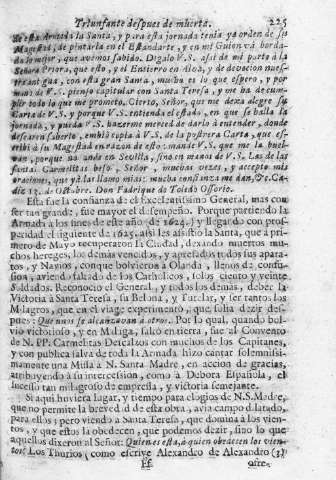 Triunfante despues de muerta. 225
de esta Armada la Santa, y para esta jornada tenia yo orden de su
Magestad, de pintarla en el Estandarte, y en mi Guion vá borda-
da lo mejor, que avemos sabido. Digalo V.S. assi de mi parte à la
Señora Priora, que esto, y el Entierro en Alva, y de devocion nues-
tra antigua, con esta gran Santa, mucho es lo que espero, y por
medio de V.S. pienso capitular con Santa Teresa, y me ha de cum-
plir todo lo que me prometo. Cierto, Señor, que me dexa alegre su
Carta de V.S. y porque V.S. entienda el estado, en que se halla la
jornada, y pueda V.S. hazerme merced de darlo à entender, donde
desearen saberlo, embio copia à V.S. de la postrera Carta, que es-
cribì à su Magestad en razon de esto: mande V.S. que me la buel-
van, porque no ande en Sevilla, sino en manos de V.S. Las de las
santas Carmelitas beso, Señor, muchas vezes, y accepto mis
oraciones, que yà las llamo mias: mucha confianza me dan, &c. Ca-
diz 13. de Octubre. Don Fadrique de Toledo Ossorio.
Esta fue la confianza de el Excelentissimo General, mas con
ser tan grande, fue mayor el desempeño. Porque partiendo la
Armada à los fines de este año de 1624. y llegando con pros-
peridad el siguiente de 1625. assi les assistiò la Santa, que à pri-
mero de Mayo recuperaron la Ciudad, dexando muertos mu-
chos hereges, los demàs vencidos, y apresados todos sus apara-
tos, y Navios, con que bolvieron à Olanda, llenos de confu-
sion, aviendo faltado de los Catholicos, solos ciento y veinte
Soldados. Reconociò el General, y todos los demàs, deber la
Victoria à Santa Teresa, su Belona, y Tutelar, y ser tantos los
Milagros, que en el viage experimentò, que solia dezir des-
pues: Que unos se alcanzavan à otros. Por lo qual, quando bol-
viò victorioso, y en Malaga, saltò en tierra, fue al Convento
de N. PP. Carmelitas Descalzos con muchos de los Capitanes,
y con publica salva de toda la Armada hizo cantar solemnissi-
mamente una Missa à N. Santa Madre, en accion de gracias,
atribuyendo à su intercession, como à Debora Española, el
sucesso tan milagroso de empressa, y victoria semejante.
Si aqui huviera lugar, y tiempo para elogios de N.S. Madre,
que no permite la brevedad de esta obra, avia campo dilatado,
para ellos; pero viendo à Santa Teresa, que domina à los vien-
tos, y que estos la obedecen, que podemos dezir, sino lo que
aquellos dixeron al Señor: Quien es esta, à quien obedecen los vien-
tos? Los Thurios, como escrive Alexandro de Alexandro (3)
Ff ofre-